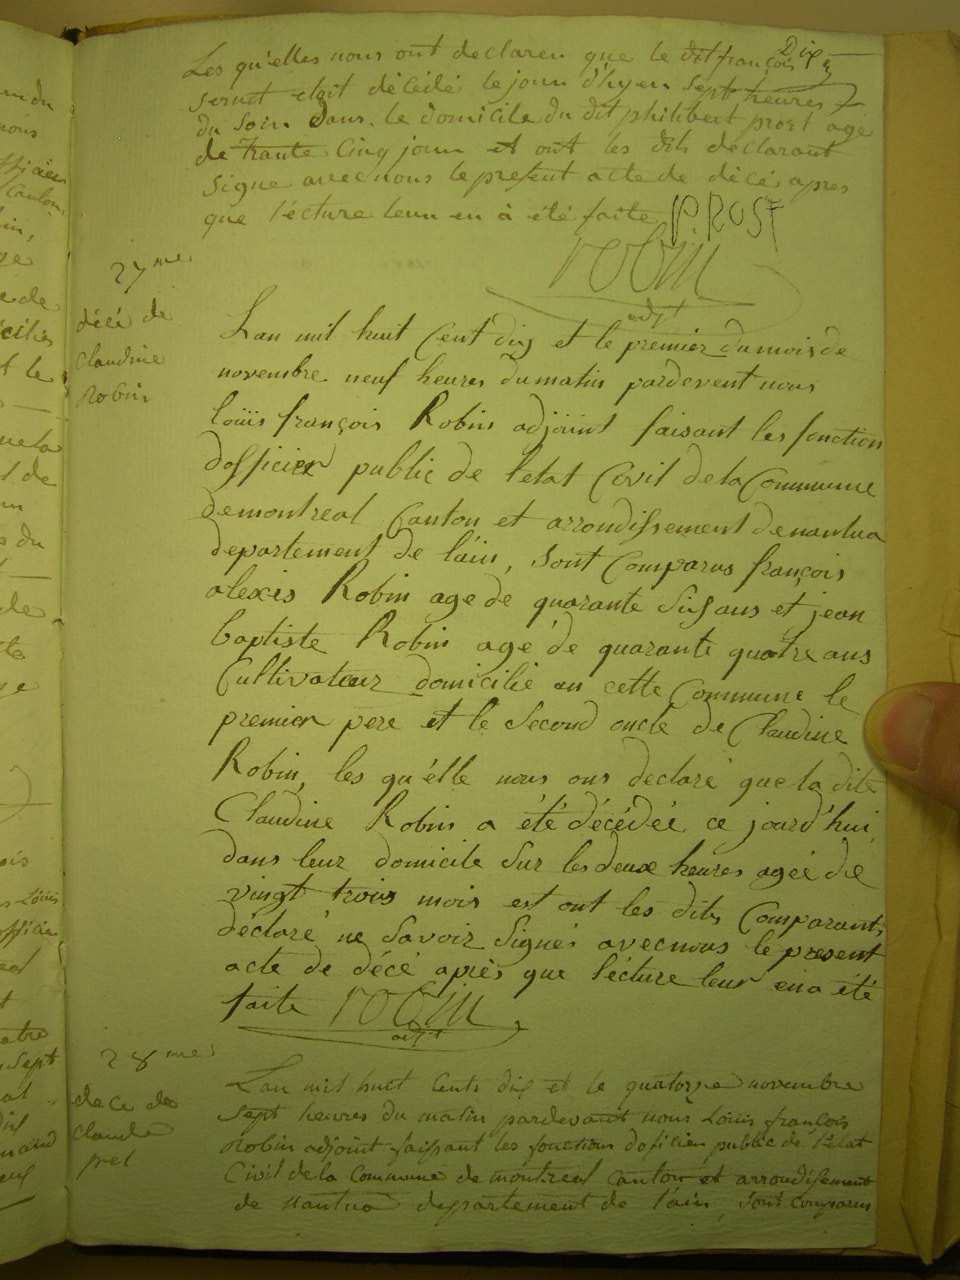 Dix
Les qu'elles nous ont declaren que le dit françois
sernet etoit décédé le jour d'hyer sept heures
du Soir dans le domicile du dit philibert prost agé
de trante Cinq jour et ont les dits declarant
Signe avec nous le present acte de décé apres
que l'écture leur en à été faite PROST
robin
adjt
27me
décé de
Claudine
Robin
Lan mil huit Cent dix et le premier du mois de
novembre neuf heures du matin pardevent nous
loüis françois Robin adjoint faisant les fonction
dofficier public de l'etat Civil de la Commune
de montreal Canton et arrondissement de nantua
departement de l'ain, sont Comparus françois
alexis Robin age de quarante Six ans et jean
baptiste Robin agé de quarante quatre ans
Cultivateur domicilié en cette Commune le
premier pere et le Second oncle de Claudine
Robin, les qu'elle nous ons declaré que la dite
Claudine Robin a été décédée ce jourd'hui
dans leur domicile sur les deux heures agée de
vingt trois mois est ont les dits Comparants
déclaré ne Savoir Signés avec nous le present
acte de décé après que l'écture leur en a été
faite robin
adjt
28me
dece de
Claude
Lan mil huit Cents dix et le quatorze novembre
Sept heures du matin pardevant nous Louis françois
Robin adjoint faissant les fonctions dofficier public de l'état
Civil de la Commune de montreal Canton et arrondisement
de Nantua departement de l'ain, sont comparus